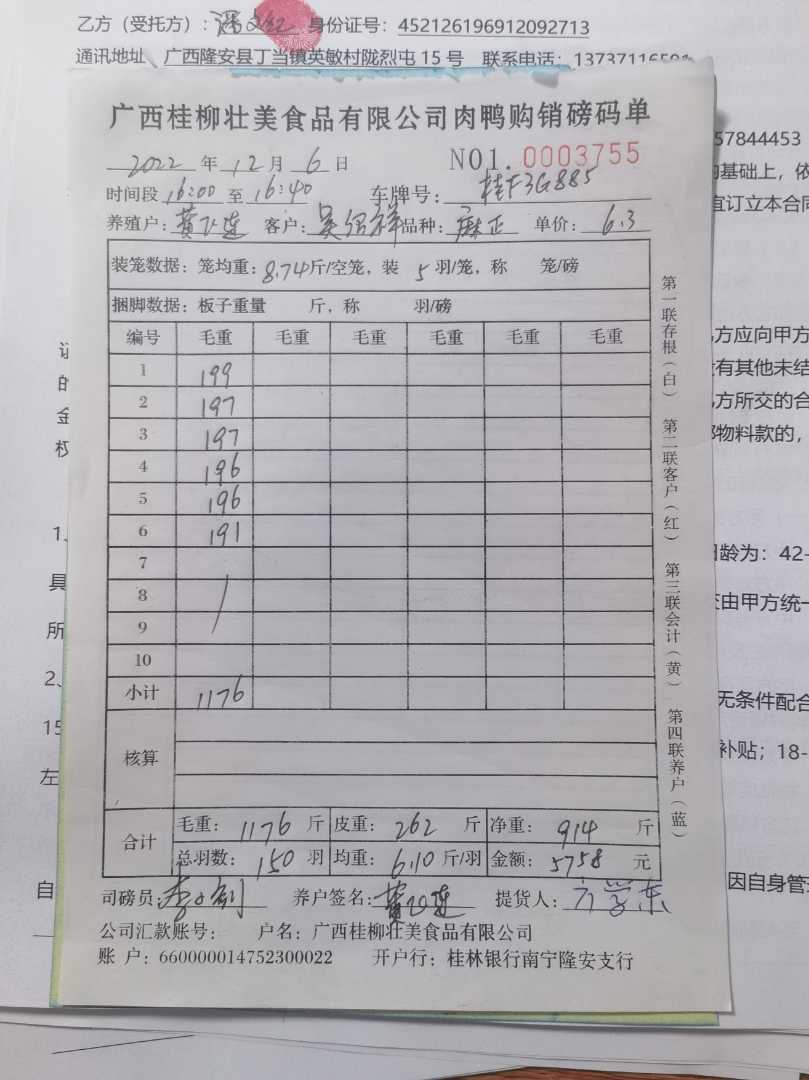 乙方（受托方）：潘文红 身份证号：452126196912092713
通讯地址 广西隆安县丁当镇英敏村陇烈屯15号 联系电话：1373711659
57844453
的基础上，依
宜订立本合同
乙方应向甲方
没有其他未结
乙方所交的合
部物料款的，
日龄为：42-
由甲方统一
无条件配合
补贴；18-
因自身管
证
的
金
权
1、
具
所
2、
15
左
自
广西桂柳壮美食品有限公司肉鸭购销磅码单
2022 年 12 月 6 日 NO1. 0003755
时间段 16:00 至 16:40 车牌号： 桂F3G885
养殖户：黄飞莲 客户：吴绍祥 品种：麻正 单价：6.3
装笼数据：笼均重：8.74斤/空笼，装 5 羽/笼，称 笼/磅
捆脚数据：板子重量 斤，称 羽/磅
编号 毛重 毛重 毛重 毛重 毛重 毛重
1 199
2 197
3 197
4 196
5 196
6 191
7
8 /
9
10
小计 1176
核算
合计 毛重：1176 斤 皮重：262 斤 净重：914 斤
总羽数：150 羽 均重：6.10 斤/羽 金额：5758 元
司磅员： 养户签名：黄飞莲 提货人：方学东
公司汇款账号： 户名：广西桂柳壮美食品有限公司
账 户：660000014752300022 开户行：桂林银行南宁隆安支行
第一联存根（白） 第二联客户（红） 第三联会计（黄） 第四联养户（蓝）